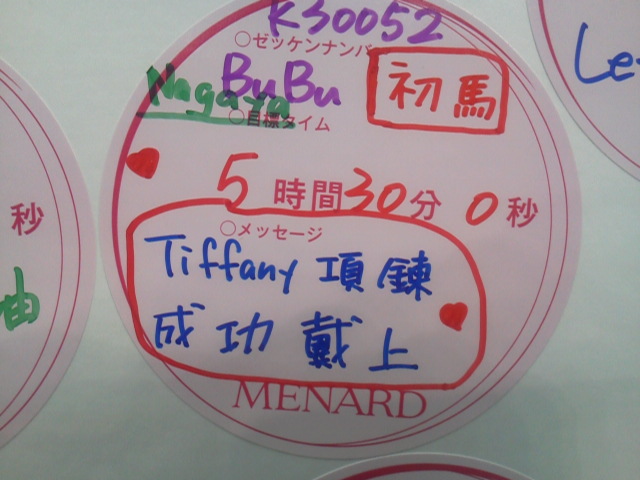 K30052
○ゼッケンナンバー
Nagoya BuBu 初馬
○目標タイム
5時間30分0秒
○メッセージ
Tiffany 項鍊
成功戴上
MENARD
秒
油
Le